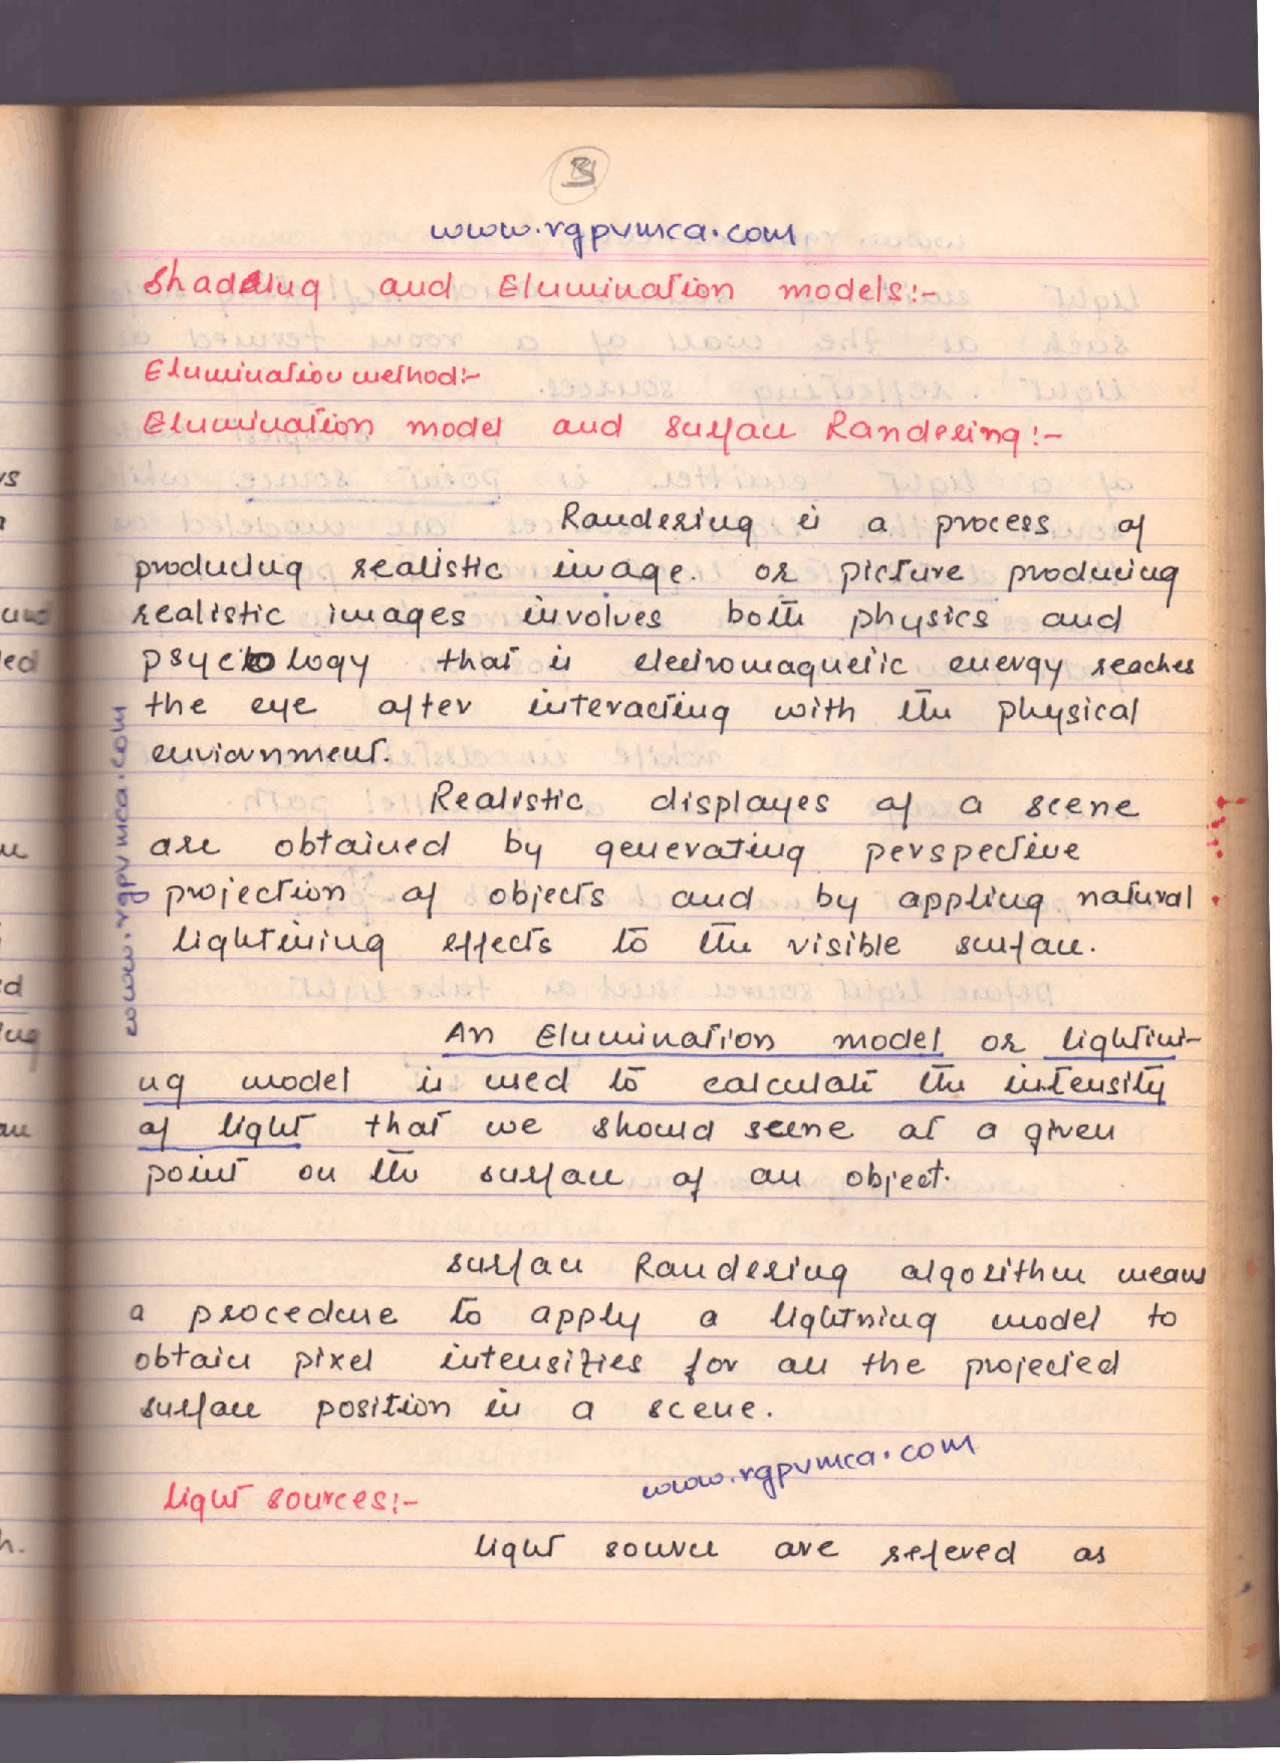 3
www.rgpvmca.com
Shadding and Elumination models:-
Elumination method:-
Elumination model and surface Randering:-
Randering is a process of
producing realistic image. or picture producing
realistic images involves both physics and
psychology that is electromagnetic energy reaches
the eye after interacting with the physical
enviornment.
Realistic displayes of a scene
are obtained by generating perspective
projection of objects and by appling natural
lightining effects to the visible surface.
An Elumination model or lightini-
ng model is used to calculate the intensity
of light that we should scene at a given
point on the surface of an object.
surface Randering algorithm means
a procedure to apply a lightning model to
obtain pixel intensities for all the projected
surface position in a scene.
www.rgpvmca.com
light sources:-
light source are refered as
www.rgpvmca.com